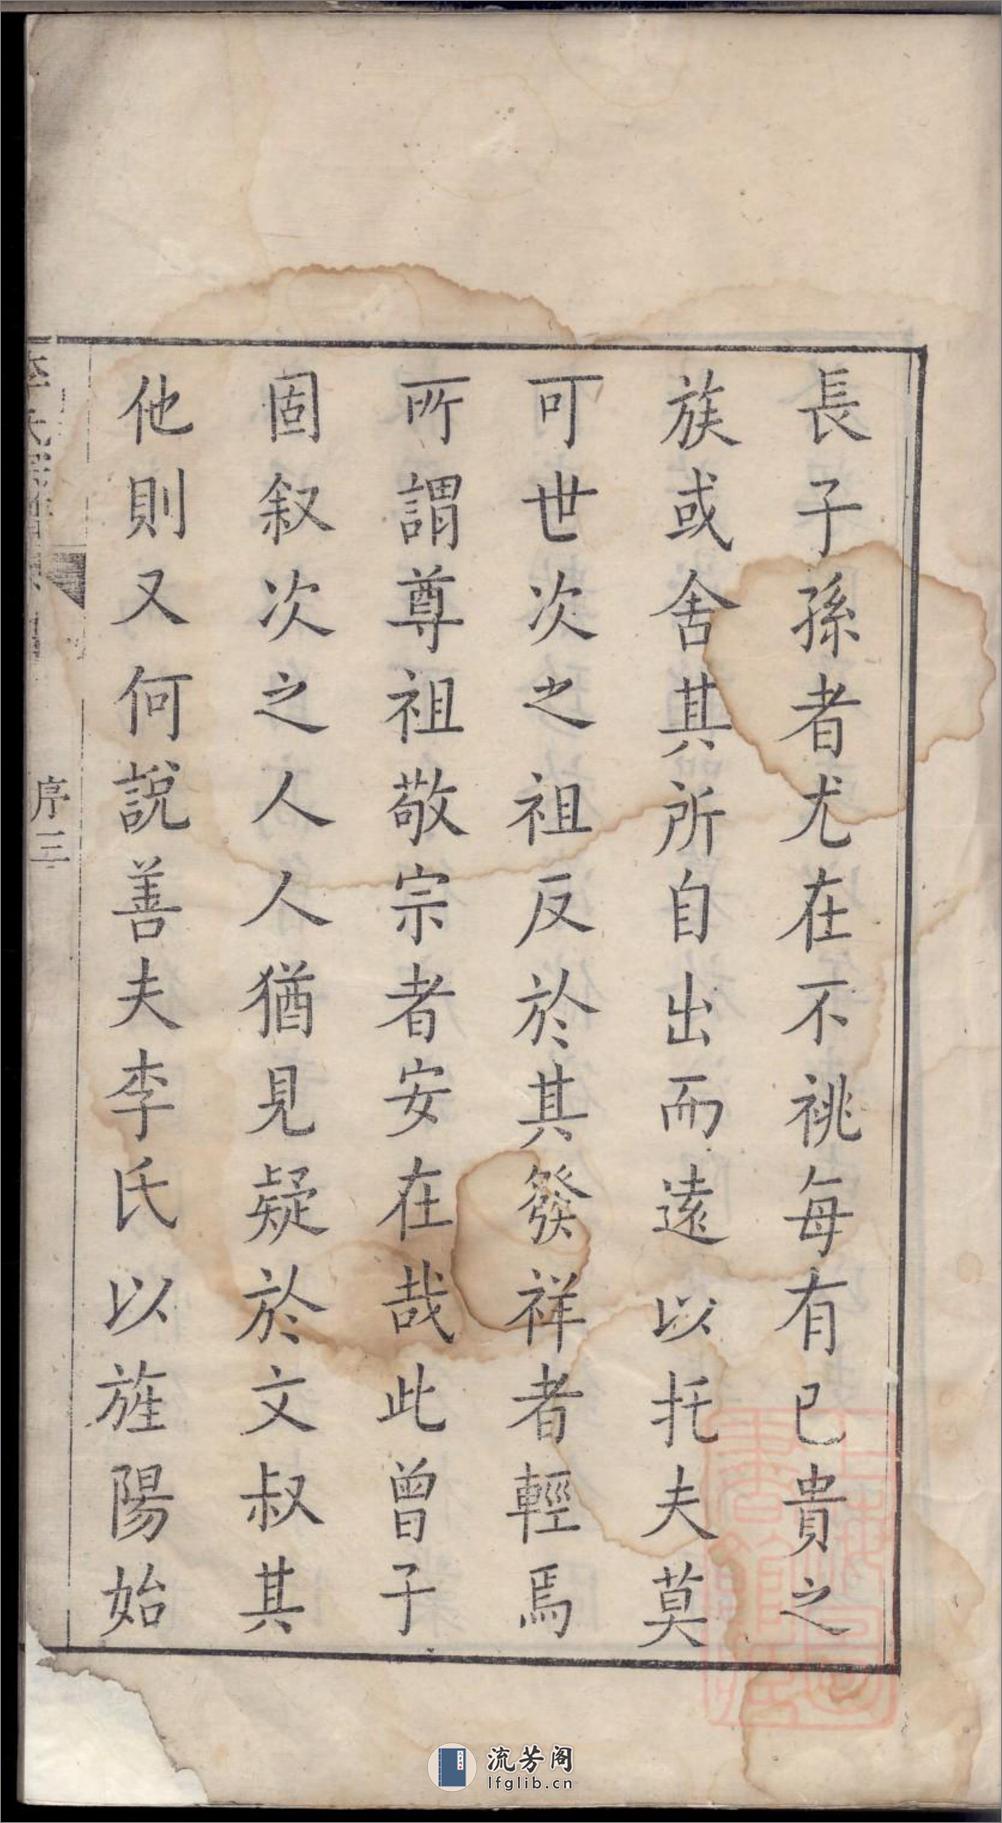 長子孫者尤在不祧每有已貴之
族或舍其所自出而遠以托夫莫
可世次之祖反於其發祥者輕焉
所謂尊祖敬宗者安在哉此曾子
固叙次之人人猶見疑於文叔其
他則又何說善夫李氏以旌陽始
序三
流芳阁
lfglib.cn